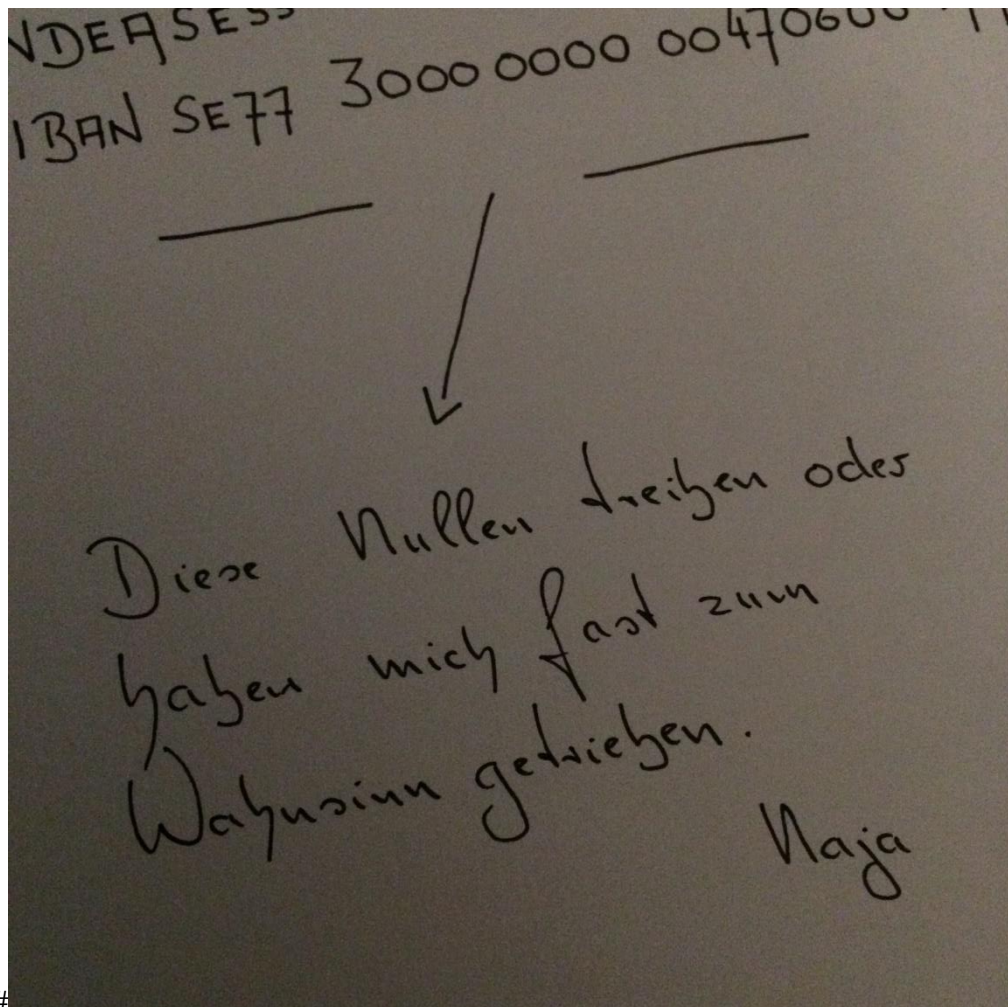 NDEASESS
IBAN SE77 3000 0000 00470600
Diese Nullen treiben oder
haben mich fast zum
Wahnsinn getrieben.
Naja